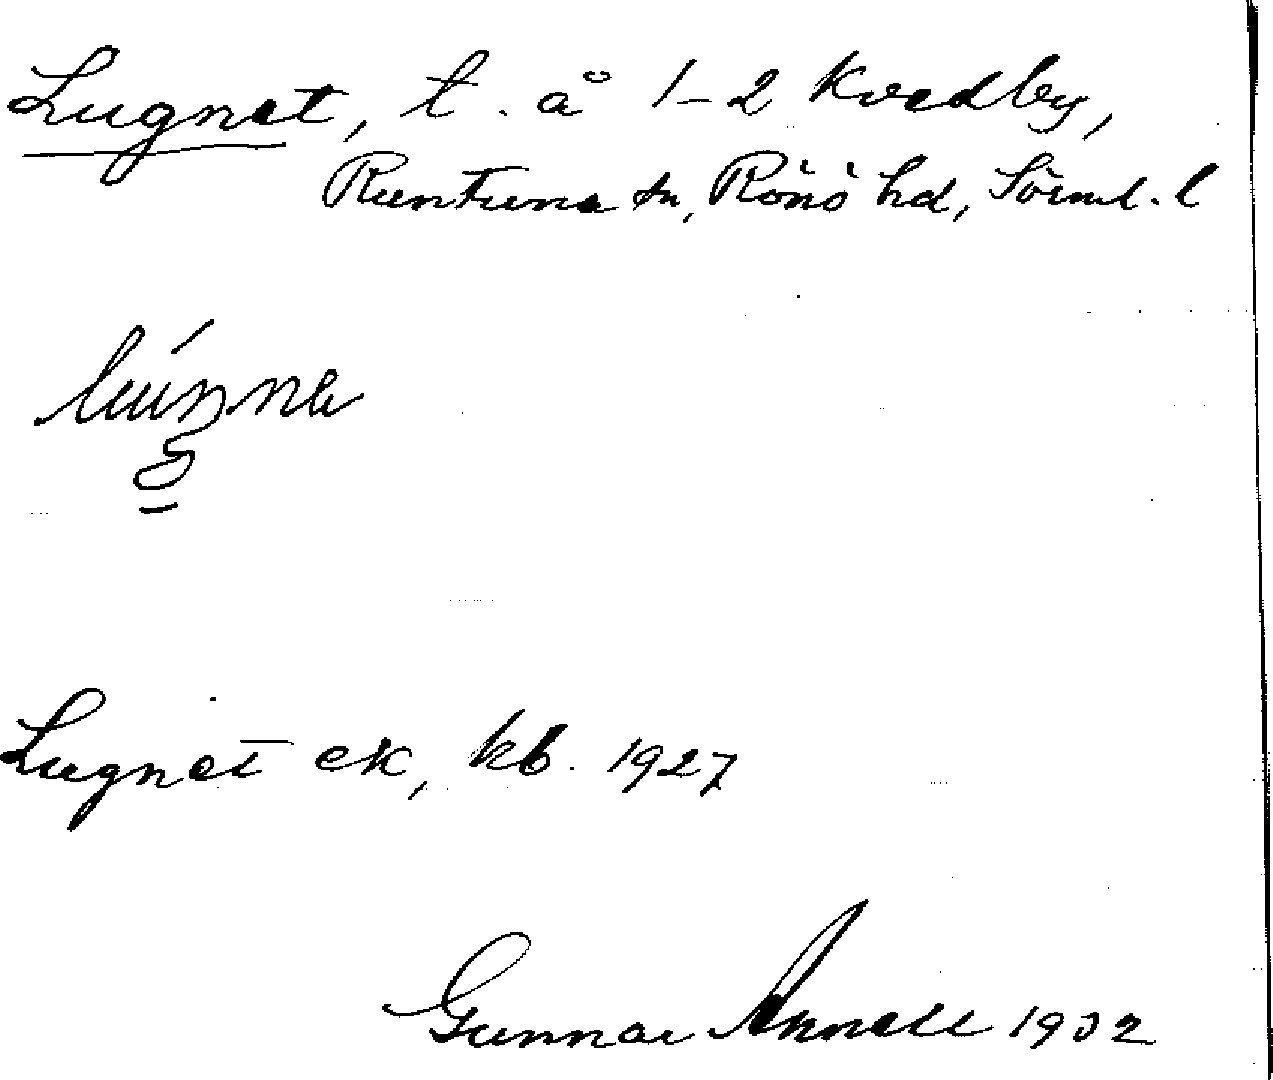 Lugnet, t. å 1-2 Kvedby,
Runtuna sn, Rönö hd, Sörml. l
Lugnet ek, kb. 1927
Gunnar Annell 1932